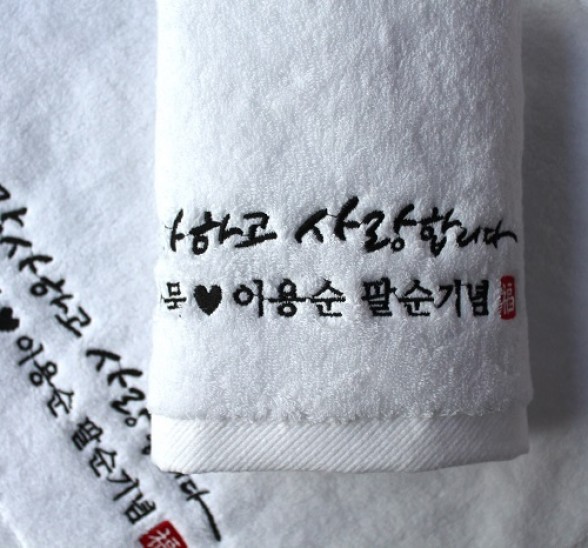 하고 사랑합니다
묵 ♥ 이용순 팔순기념 福
사하고 사랑
♥ 이용순 팔순기념 福